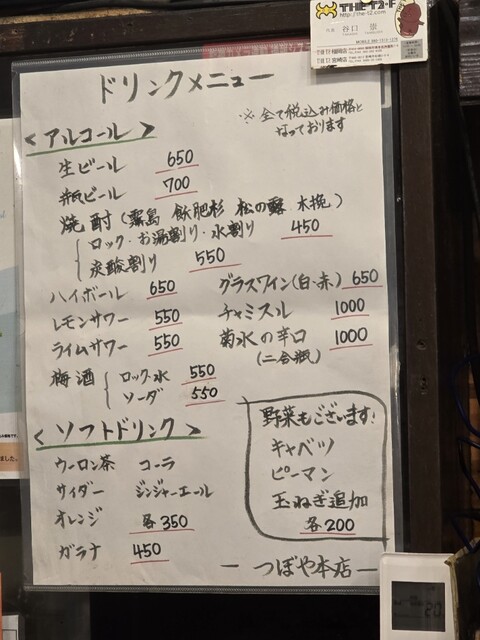 http://the-t2.com
谷口 崇
ドリンクメニュー
※ 全て税込み価格と
なっております
<アルコール>
生ビール 650
瓶ビール 700
焼酎(霧島 飫肥杉 松の露 木挽)
ロック・お湯割り・水割り 450
炭酸割り 550
ハイボール 650
レモンサワー 550
ライムサワー 550
梅酒 ロック・水 550
ソーダ 550
グラスワイン(白・赤) 650
チャミスル 1000
菊水の辛口 1000
(二合瓶)
<ソフトドリンク>
ウーロン茶 コーラ
サイダー ジンジャーエール
オレンジ 各350
ガラナ 450
野菜もございます!
キャベツ
ピーマン
玉ねぎ追加
各200
― つぼや本店 ―